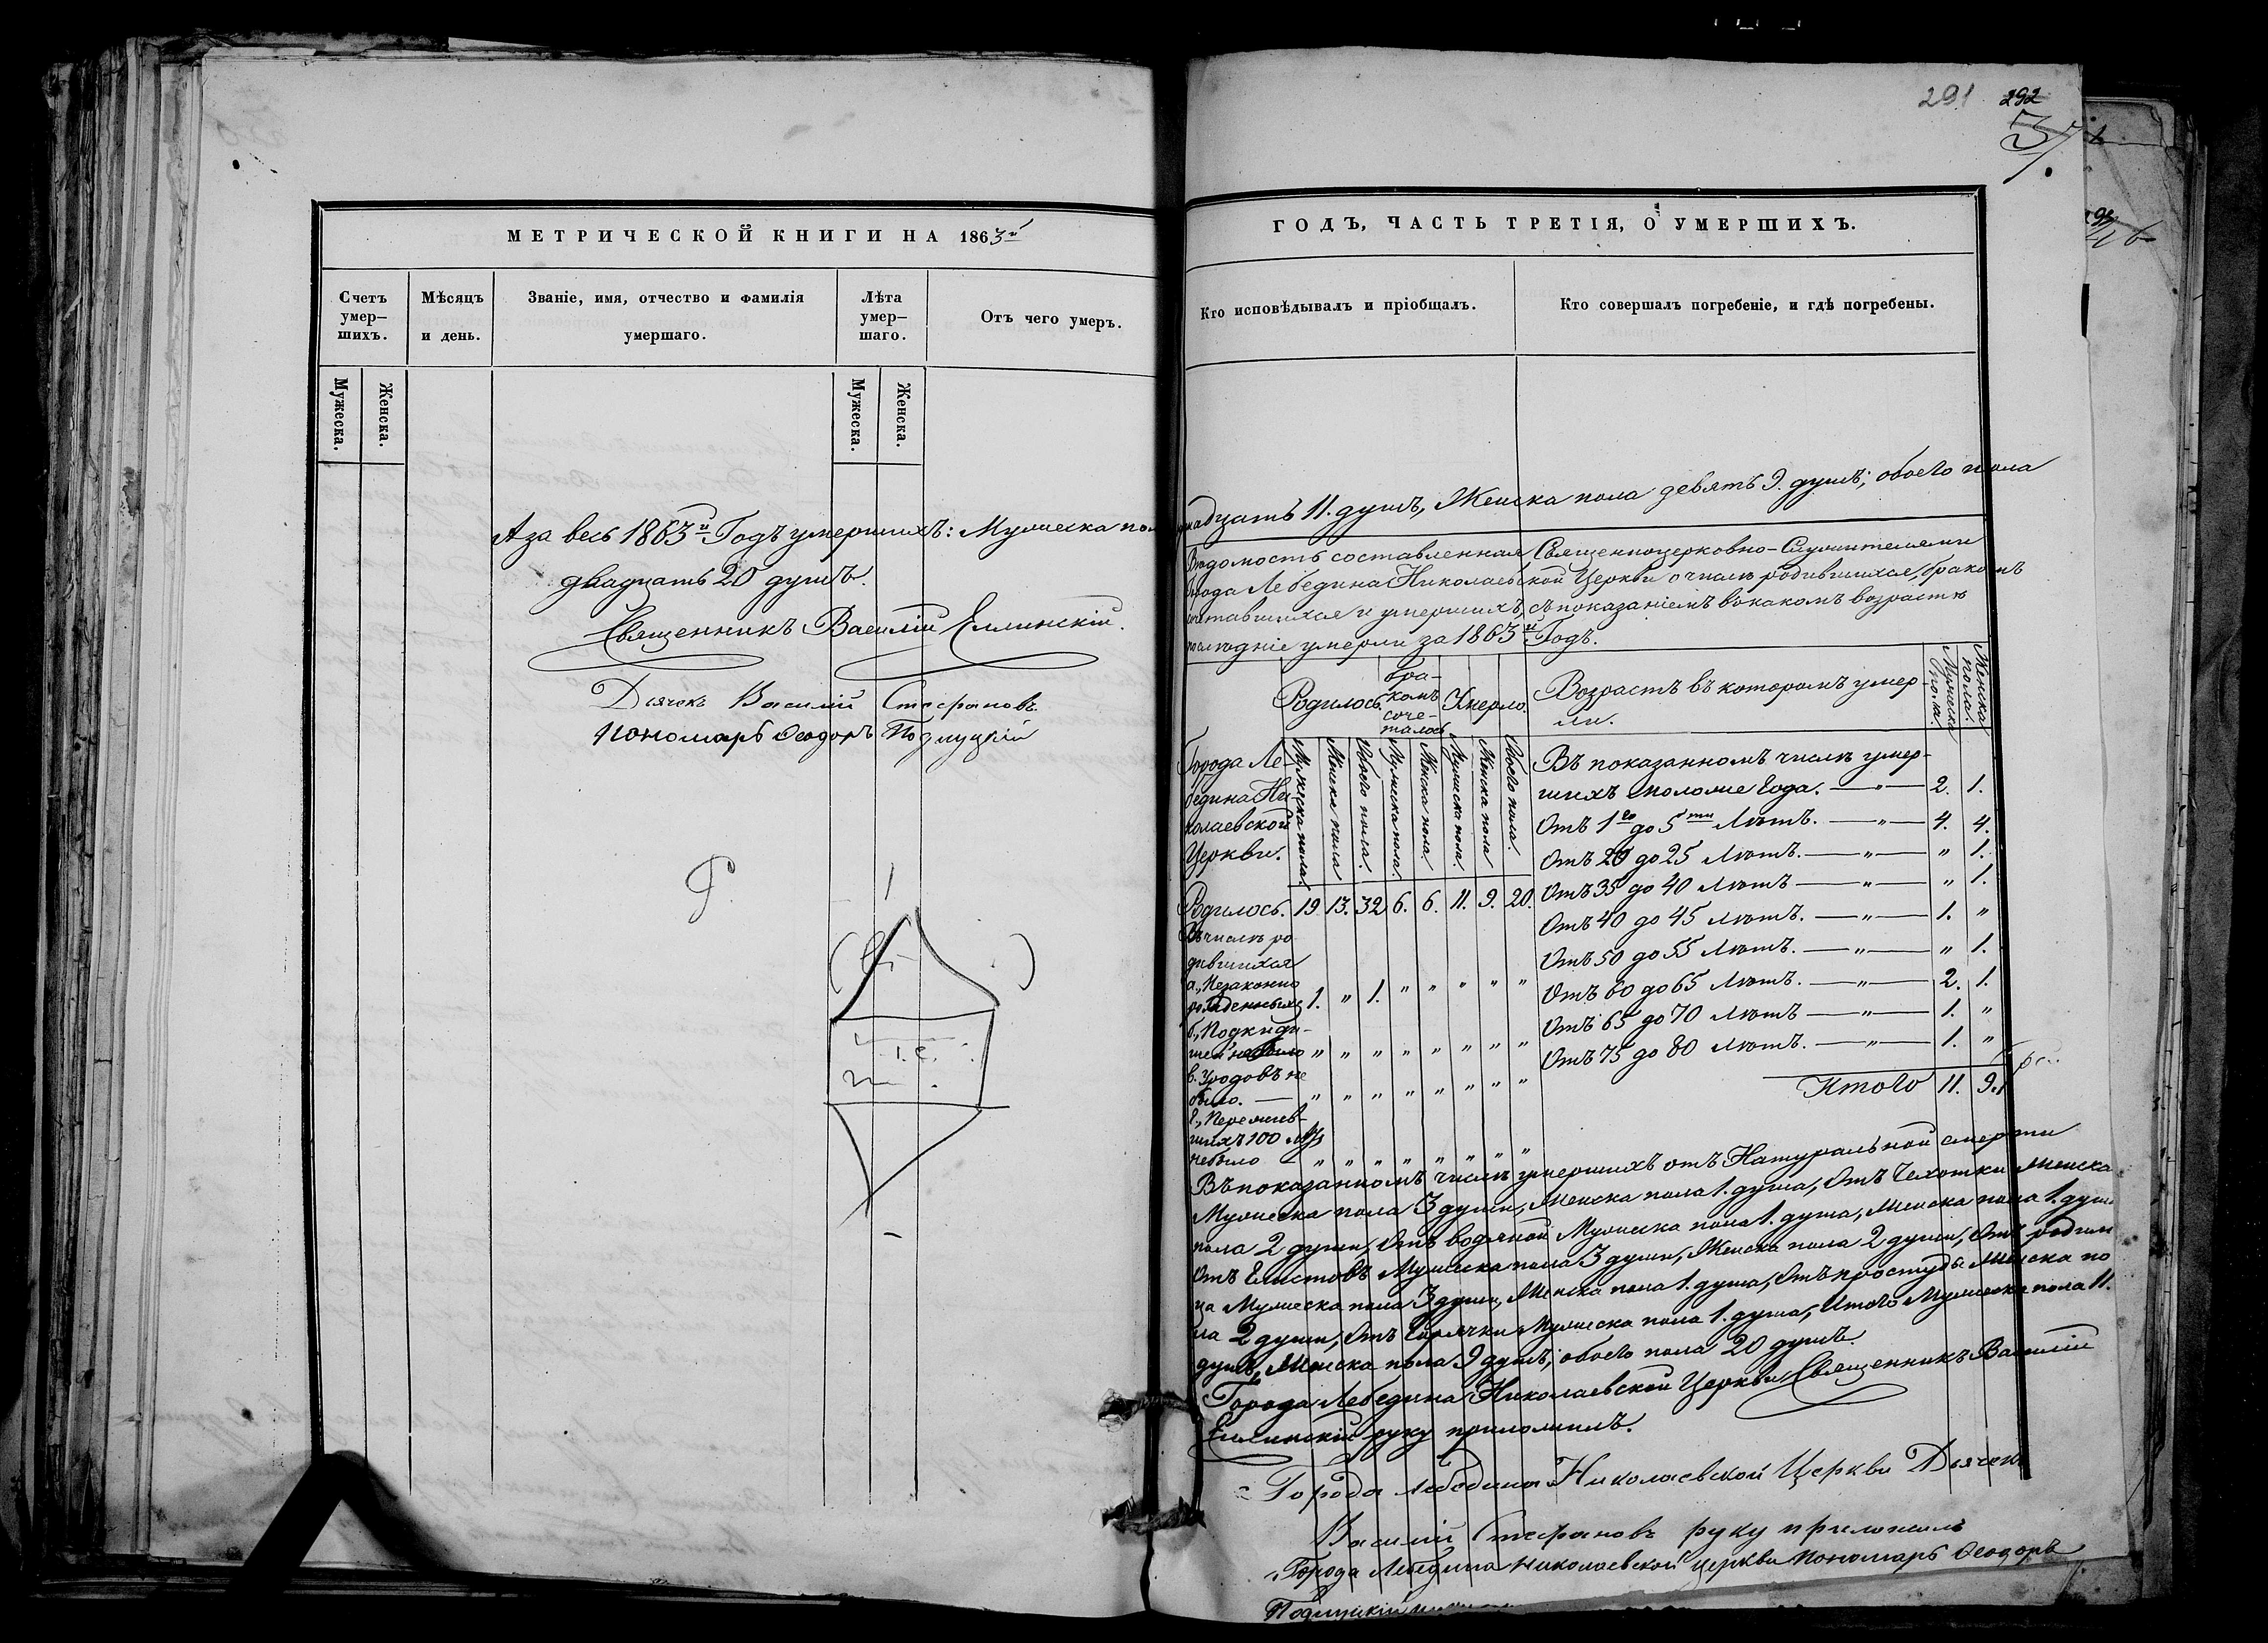 291 292
37.
МЕТРИЧЕСКОЙ КНИГИ НА 1863й
Счетъ умер—шихъ.
Мѣсяцъ и день.
Званіе, имя, отчество и фамилія умершаго.
Лѣта умер—шаго.
Отъ чего умеръ.
Мужеска.
Женска.
Мужеска.
Женска.
А за весь 1863й Годъ умершихъ: Мужеска пола
двадцать 20 душъ.
Священникъ Василій Еллинскій.
Дьячекъ Василій Стефановъ
Пономарь Ѳеодоръ Подлуцкій
ГОДЪ, ЧАСТЬ ТРЕТІЯ, О УМЕРШИХЪ.
Кто исповѣдывалъ и пріобщалъ.
Кто совершалъ погребеніе, и гдѣ погребены.
надцать 11. душъ, Женска пола девять 9. душъ; обоего пола
Вѣдомость составленная Священноцерковно-Служителями
города Лебедина Николаевской Церкви о числѣ родившихся, бракомъ
сочетавшихся и умершихъ, съ показаніемъ въ какомъ возрастѣ
послѣдніе умерли за 1863й Годъ.
Родилось.
бра-
комъ
соче-
талось
Умерло.
Возрастъ въ которомъ умер-
ли.
Мужеска пола.
Женска пола.
Города Ле-
бедина Ни-
колаевской
Церкви.
Мужеска пола.
Женска пола
Обоего пола.
Мужеска пола.
Женска пола.
Мужеска пола.
Женска пола
Обоего пола.
Родилось. 19. 13. 32. 6. 6. 11. 9. 20.
Въ числѣ ро
дившихся
а., Незаконно
рожденныхъ 1. " 1. " " " " "
б., Подкиды-
шей небыло " " " " " " " "
в. Уродовъ не
было. — " " " " " " " "
г., Пережив-
шихъ 100 лѣтъ
небыло " " " " " " " "
Въ показанномъ числѣ умер-
шихъ моложе Года. — " — 2. 1.
Отъ 1го до 5ти Лѣтъ. — " — 4. 4.
Отъ 20 до 25 Лѣтъ. — " — " 1.
Отъ 35 до 40 Лѣтъ — " — " 1.
Отъ 40 до 45 Лѣтъ. — " — 1. "
Отъ 50 до 55 Лѣтъ. — " — " 1.
Отъ 60 до 65 Лѣтъ. — " — 2. 1.
Отъ 65 до 70 Лѣтъ — " — 1. "
Отъ 75 до 80 Лѣтъ. — " — 1. "
Итого 11. 9.
Въ показанномъ числѣ умершихъ отъ Натуральной смерти
Мужеска пола 3 души, Женска пола 1. душа, Отъ Чахотки Женска
пола 2 души, Отъ водяной Мужеска пола 1. душа, Женска пола 1. душа
Отъ Глистовъ Мужеска пола 3 души, Женска пола 2 души, Отъ родим
ца Мужеска пола 3 души, Женска пола 1. душа, Отъ простуды Женска по
ла 2 души, Отъ Горячки Мужеска пола 1. душа, Итого Мужеска пола 11.
душъ, Женска пола 9 душъ; обоего пола 20 душъ.
Города Лебедина Николаевской Церкви Священникъ Василій
Еллинскій руку приложилъ.
Города Лебедина Николаевской Церкви Дьячекъ
Василій Стефановъ руку приложилъ
Города Лебедина Николаевской церкви Пономарь Ѳеодоръ
Подлуцкій